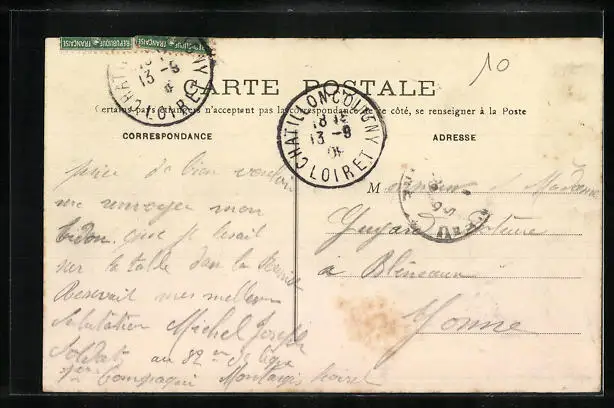 RÉPUBLIQUE FRANÇAISE
CARTE POSTALE
Certains pays étrangers n'acceptant pas la correspondance de ce côté, se renseigner à la Poste
CORRESPONDANCE
ADRESSE
10
CHATILLON-COLIGNY
13-9
LOIRET
CHATILLON-COLIGNY
13-9
LOIRET
prière de bien vouloir
me renvoyer mon
bidon que je laissé
sur la table dans la
Recevait mes meilleur
Salutation Michel Joseph
Soldat au 82 de ligne
Compagnie Montargis Loiret
Monsieur Madame
à Bléneau
Yonne